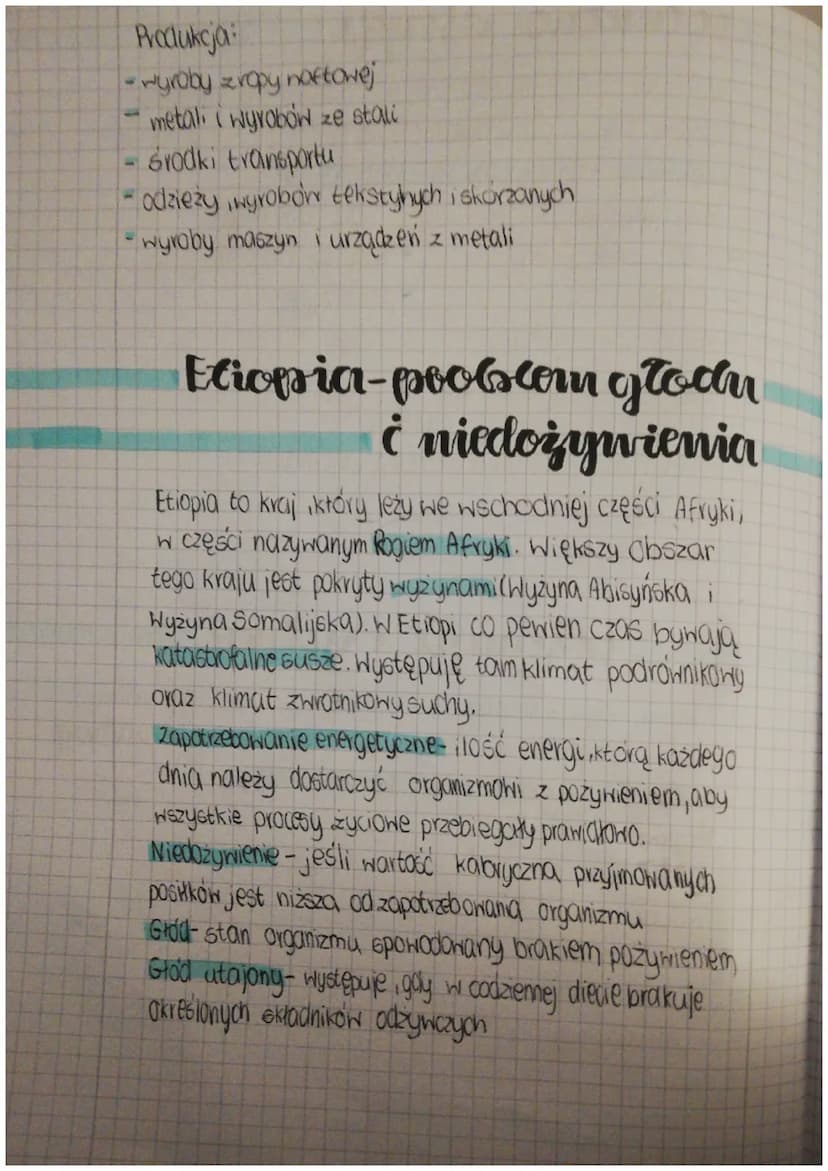 Produkcja:
- wyroby z ropy naftowej
- metali i wyrobów ze stali
- środki transportu
- odzieży, wyrobów tekstylnych i skórzanych
- wyroby maszyn i urządzeń z metali
Etiopia-problem głodu
i niedożywienia
Etiopia to kraj, który leży we wschodniej części Afryki,
w części nazywanym Rogiem Afryki. Większy obszar
tego kraju jest pokryty wyżynami (Wyżyna Abisyńska i
Wyżyna Somalijska). W Etiopi co pewien czas bywają
katastrofalne susze. Występuję tam klimat podrównikowy
oraz klimat zwrotnikowy suchy.
Zapotrzebowanie energetyczne- ilość energi, którą każdego
dnia należy dostarczyć organizmowi z pożywieniem, aby
wszystkie procesy życiowe przebiegały prawidłowo.
Niedożywienie - jeśli wartość kaloryczna przyjmowanych
posiłków jest niższa od zapotrzebowania organizmu
Głód- stan organizmu spowodowany brakiem pożywieniem
Głód utajony- występuje, gdy w codziennej diecie brakuje
określonych składników odżywczych